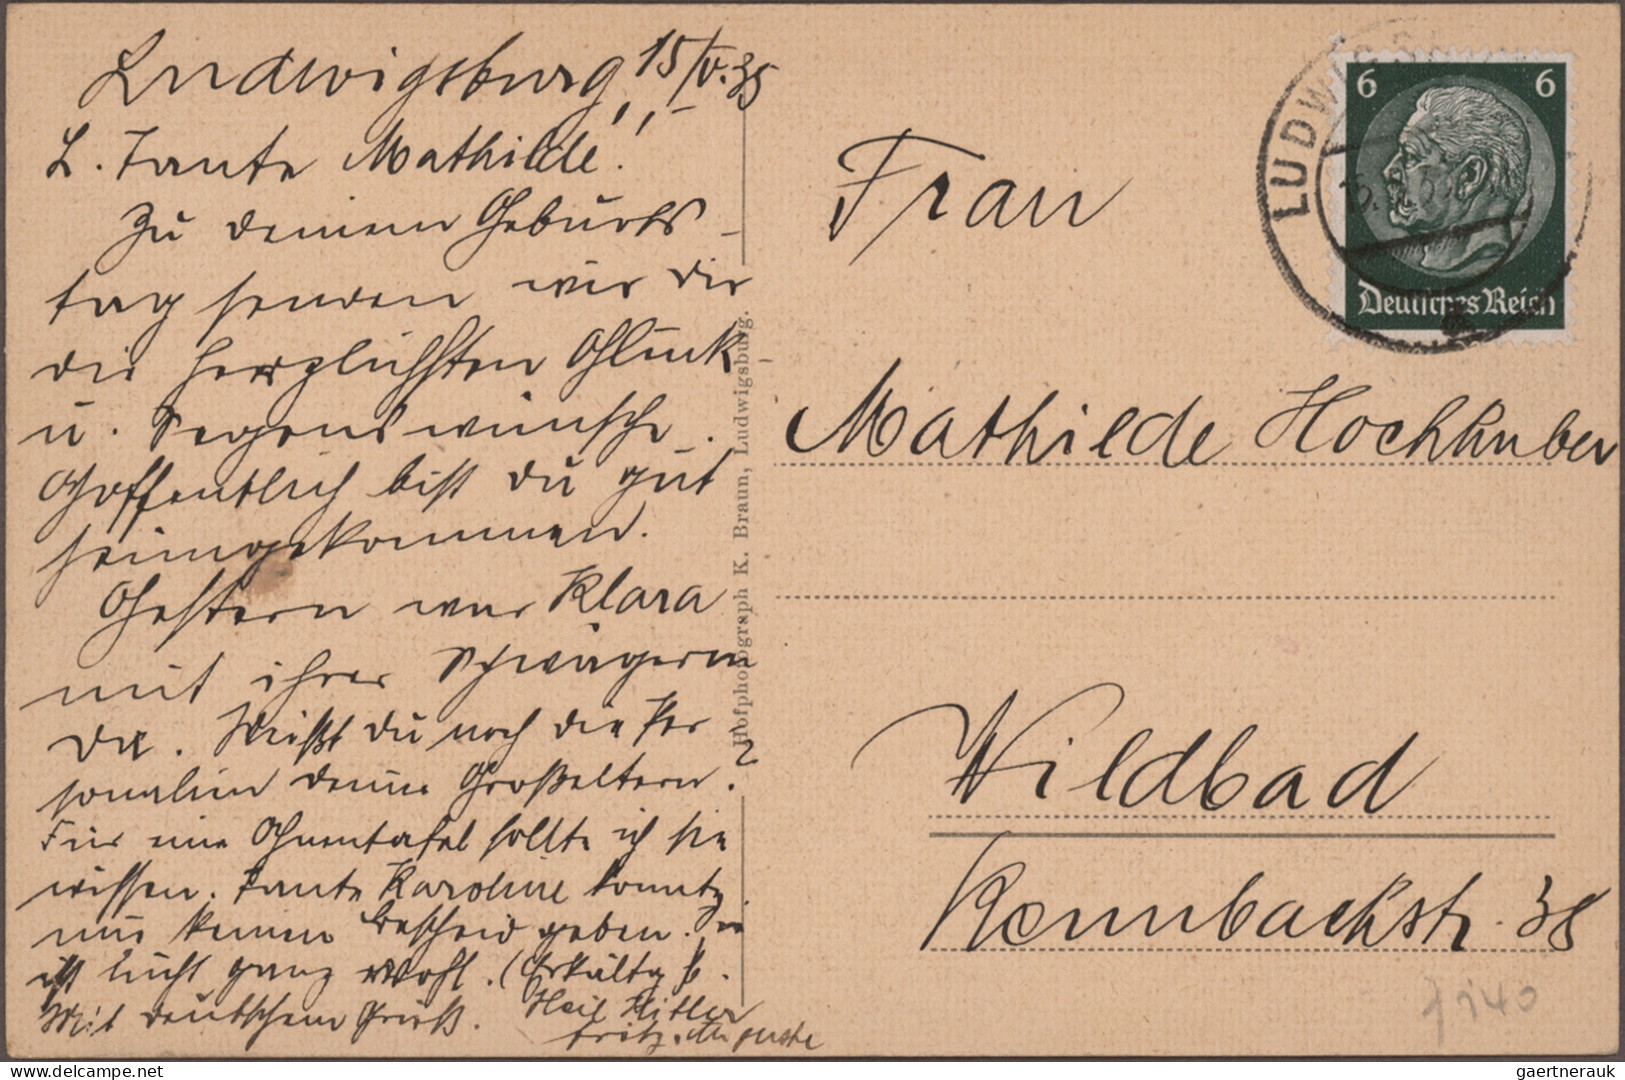 Ludwigsburg, 15/V. 35
L. Tante Mathilde!
Zu deinem Geburts-
tag senden wir dir
die herzlichsten Glück
u. Segenswünsche.
Hoffentlich bist du gut
heimgekommen.
Gestern war Klara
mit ihrer Schwägerin
da. Weißt du noch die Per
sonalien deiner Großeltern?
Für eine Ahnentafel sollte ich sie
wissen. Tante Karoline konnte
mir keinen Bescheid geben. Sie
ist nicht ganz wohl. (Erkältg
Mit deutschem Gruß. Heil Hitler
Fritz. Auguste
Hofphotograph K. Braun, Ludwigsburg.
Frau
Mathilde Hochhuber
Wildbad
Rennbachstr. 38
6 6
Deutsches Reich
LUDWIGSB
gaertnerauk